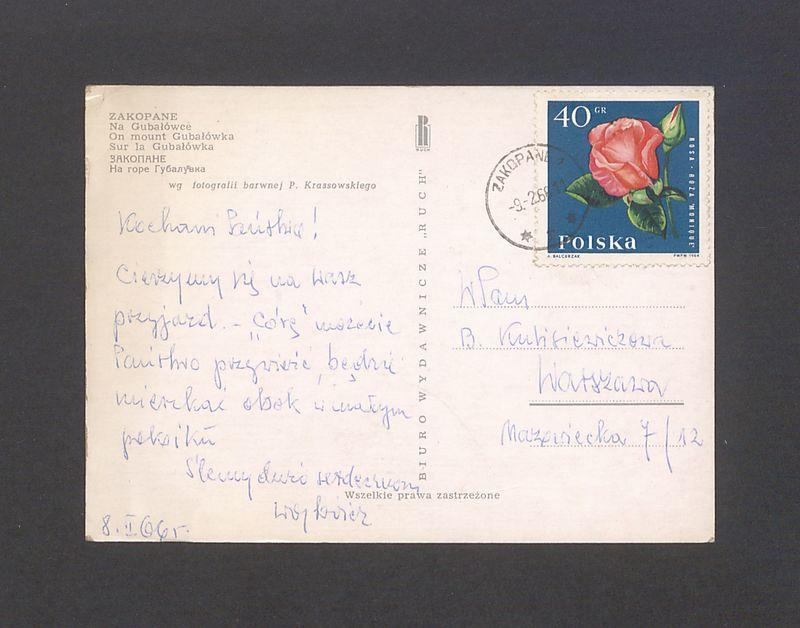 ZAKOPANE
Na Gubałówce
On mount Gubałówka
Sur la Gubałówka
ЗАКОПАНЕ
На горе Губалувка
wg fotografii barwnej P. Krassowskiego
Kochani Państwo!
Cieszymy się na Wasz
przyjazd. - "Córę" możecie
Państwo przywieźć, będzie
mieszkać obok w małym
pokoiku
Ślemy dużo serdeczności
8. II 66 r.
RUCH
BIURO WYDAWNICZE „RUCH"
Wszelkie prawa zastrzeżone
40 GR
ROSA - ROZA "MONIQUE"
Polska
A. BALCERZAK
PWPW 1964
ZAKOPANE 1
-9.-2.66
WPani
B. Kulisiewiczowa
Warszawa
Mazowiecka 7/12